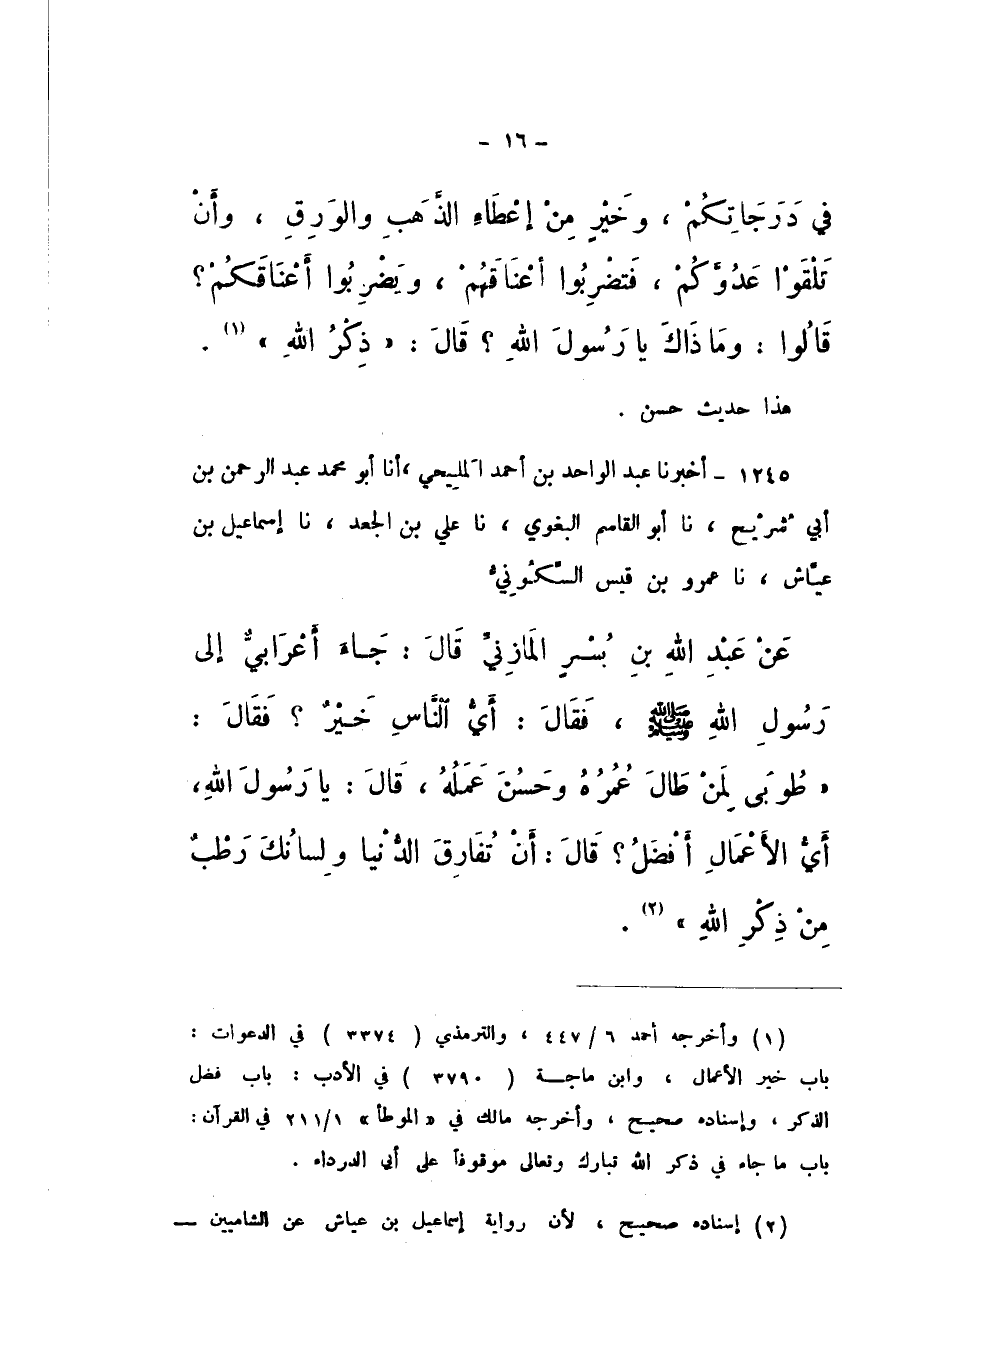 - ١٦ -
في دَرَجَاتِكُمْ ، وخَيْرٍ مِنْ إعْطَاءِ الذَّهَبِ والوَرِقِ ، وأَنْ
تَلْقَوْا عَدُوَّكُمْ ، فَتَضْرِبُوا أعْنَاقَهُمْ ، ويَضْرِبُوا أَعْنَاقَكُمْ؟
قَالُوا : ومَا ذَاكَ يا رَسُولَ اللهِ ؟ قَالَ : « ذِكْرُ اللهِ » (١) .
هذا حديث حسن .
١٢٤٥ - أخبرنا عبد الواحد بن أحمد المَلِيحي ،أنا أبو محمد عبد الرحمن بن
أبي شُرَيْح ، نا أبو القاسم البغوي ، نا علي بن الجعد ، نا إسماعيل بن
عيَّاش ، نا عمرو بن قيس السَّكُونيُّ
عَنْ عَبْدِ اللهِ بنِ بُسْرٍ المَازِنيِّ قَالَ : جَاءَ أَعْرَابيٌّ إلى
رَسُولِ اللهِ ﷺ ، فَقَالَ : أَيُّ النَّاسِ خَيْرٌ ؟ فَقَالَ :
« طُوبَى لِمَنْ طَالَ عُمُرُهُ وحَسُنَ عَمَلُهُ ، قَالَ : يا رَسُولَ اللهِ،
أَيُّ الأَعْمَالِ أَفْضَلُ ؟ قَالَ : أَنْ تُفَارِقَ الدُّنْيا ولِسانُكَ رَطْبٌ
مِنْ ذِكْرِ اللهِ » (٢) .
(١) وأخرجه أحمد ٦ / ٤٤٧ ، والترمذي ( ٣٣٧٤ ) في الدعوات :
باب خير الأعمال ، وابن ماجـة ( ٣٧٩٠ ) في الأدب : باب فضل
الذكر ، وإسناده صحيح ، وأخرجه مالك في « الموطأ » ٢١١/١ في القرآن :
باب ما جاء في ذكر الله تبارك وتعالى موقوفاً على أبي الدرداء .
(٢) إسناده صحيح ، لأن رواية إسماعيل بن عياش عن الشاميين —